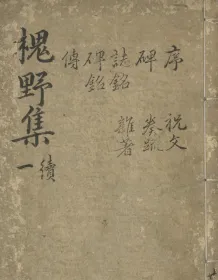 槐野集
續
一
序 祝文
碑 奏疏
誌銘 雜著
碑銘
傳